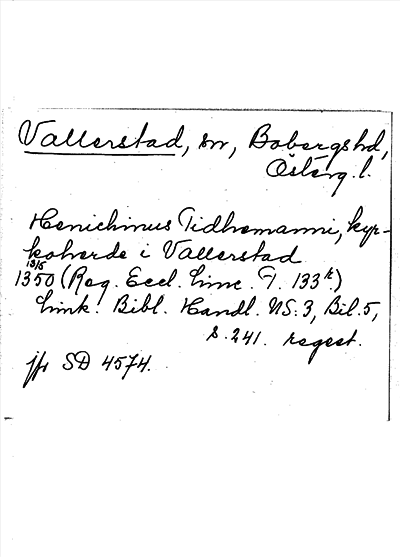 Vallerstad, sn, Bobergshd,
Östérg. l.
Henichinus Tidhemanni, kyr-
koherde i Vallerstad
13/5
1350 (Reg. Eccl. Linc. T. 133r.)
Link. Bibl. Handl. NS. 3, Bil. 5,
s. 241. regest.
jfr SD 4574.